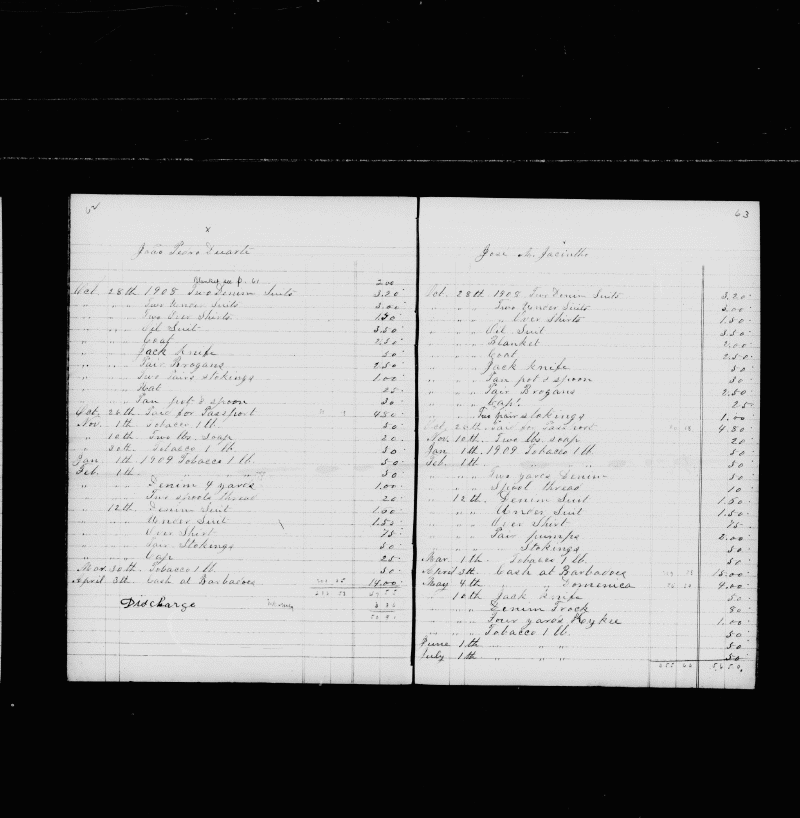 x
João Pedro Duarte
200
Oct. 28th 1908 Two Denim Suits 3.20
" " " Two Under Suits 3.00
" " " Two Over Shirts 1.50
" " " Oil Suit 3.50
" " " Coat 2.50
" " " Jack Knife 50
" " " Pair Brogans 2.50
" " " Two Pairs stokings 1.00
" " " Hat 25
" " " Pan pot & spoon 50
Oct. 26th for Passport 4.80
Nov. 1th Tobacco 1 lb. 50
" 10th Two lbs. soap 20
" 30th Tobacco 1 lb 50
Jan 1th 1909 Tobacco 1 lb. 50
Feb. 1th " " 50
" " " Denim 4 yares 1.00
" " " Two spools thread 20
" 12th Denim Suit 1.60
" " " Under Suit 1.50
" " " Over Shirt 75
" " " Pair Stokings 50
" " " Cap 25
Mar. 30th Tobacco 1 lb. 50
April 3th Cash at Barbadoes 14.00
Discharge
63
Jose M. Jacintho
Oct. 28th 1908 Two Denim Suits 3.20
" " " Two Under Suits 3.00
" " " " Over Shirts 1.50
" " " Oil Suit 3.50
" " " Blanket 2.00
" " " Coat 2.50
" " " Jack Knife 50
" " " Pan pot & spoon 50
" " " Pair Brogans 2.50
" " " Cap. 25
" " " Two pair stokings 1.00
Oct. 26th for Passport 4.80
Nov. 10th Two lbs. soap 20
Jan 1th 1909 Tobacco 1 lb 50
Feb. 1th " " " 50
" " " Two yares Denim 50
" " " Spool thread 10
" 12th Denim Suit 1.60
" " " Under Suit 1.50
" " " Over Shirt 75
" " " Pair pumps 2.00
" " " Stokings 50
Mar. 1th Tobacco 1 lb. 50
April 3th Cash at Barbadoes 15.00
May 4th " " Domenica 4.00
" 10th Jack Knife 50
" " " Denim Frock 80
" " " Four yares 1.00
" " " Tobacco 1 lb. 50
June 1th " " " 50
July 1th " " " 50
56.50